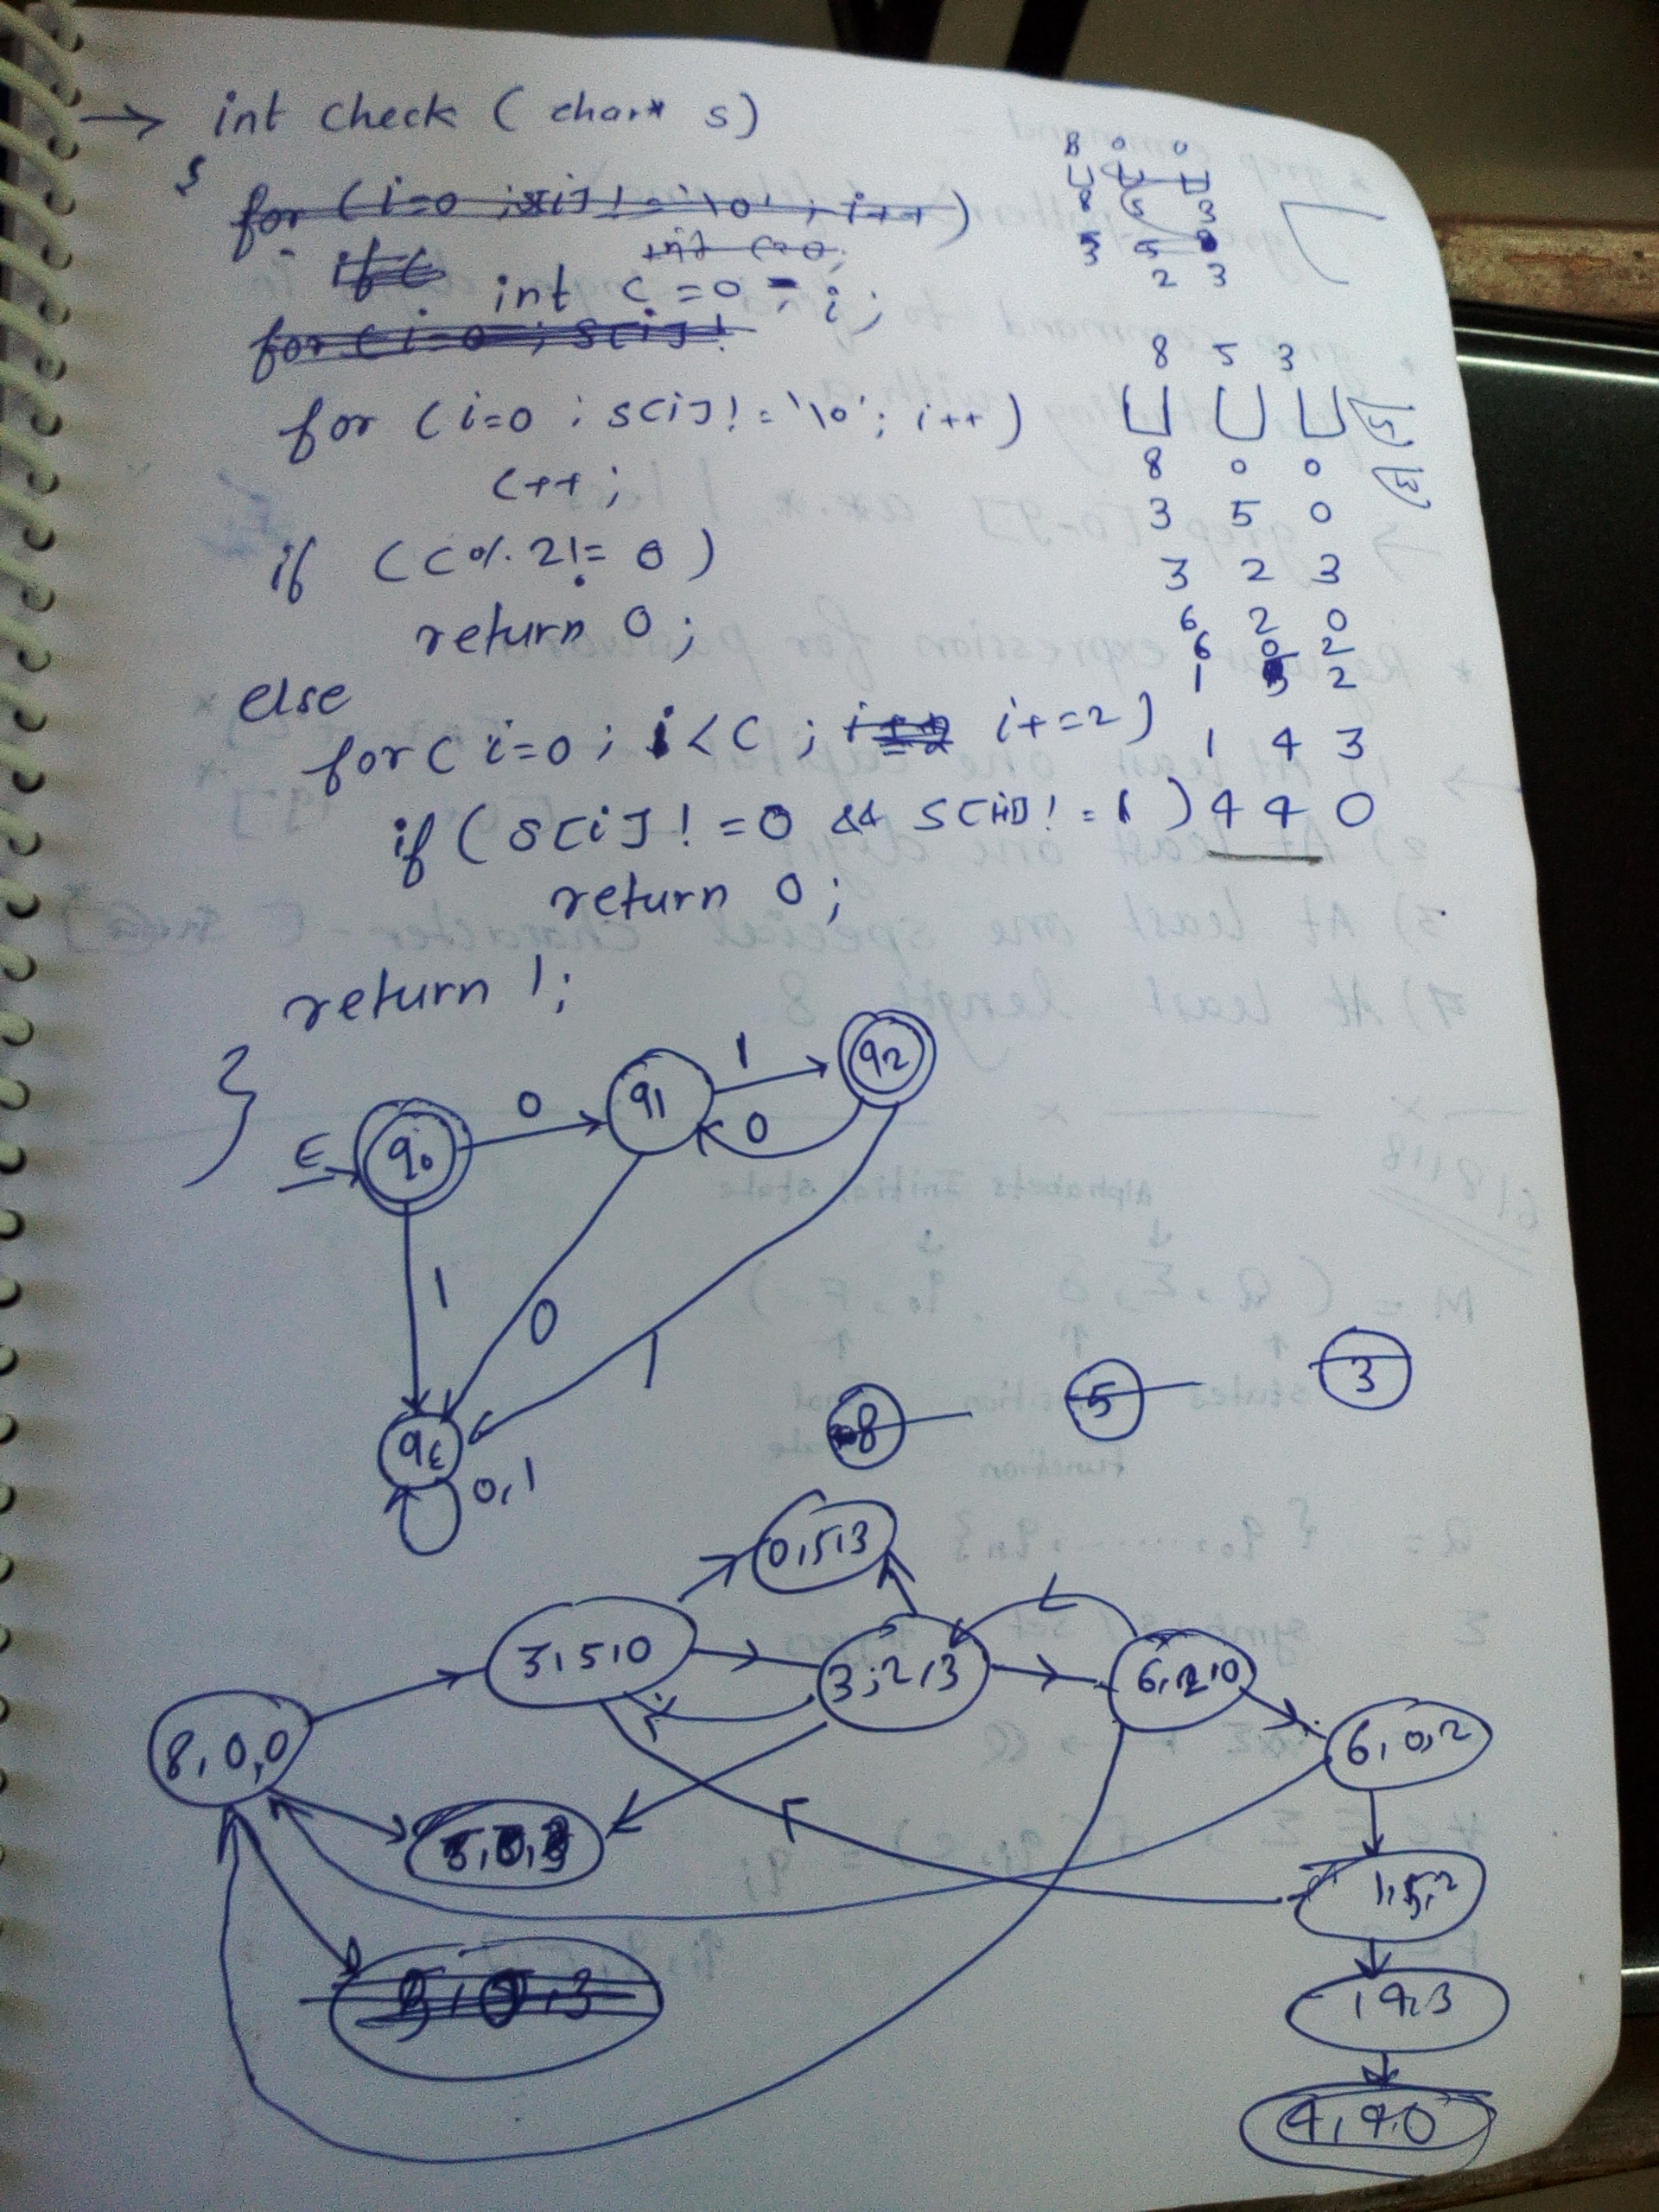 → int check ( char* s)
{
for ( i=0 ; s[i] ! = '\0' ; i++ )
if (
int c=0;
int c = 0 , i ;
for ( i=0 ; s[i] !
for ( i=0 ; s[i] ! = '\0' ; i++ )
c++ ;
if ( c % 2 != 0 )
return 0 ;
else
for ( i=0 ; i < c ; i+=2 )
if ( s[i] ! = 0 && s[i+1] ! = 1 )
return 0 ;
return 1 ;
}
8 0 0
8 5 3
3 5
2 3
8 5 3
8 0 0
3 5 0
3 2 3
6 2 0
6 0 2
1 5 2
1 4 3
4 4 0
ε q0 0 q1 1 q2
0
1 0 1
qε
0,1
8 5 3
0,5,3
3,5,0 3,2,3 6,2,0
8,0,0 6,0,2
1,5,2
1,4,3
4,4,0